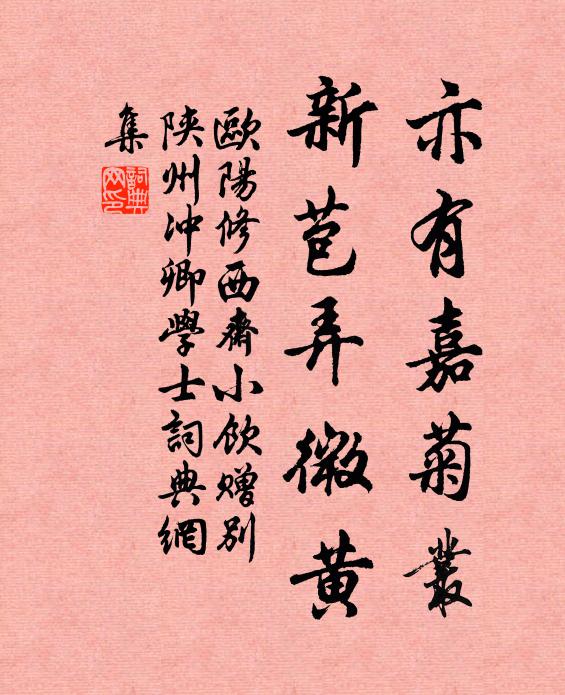 亦有嘉菊叢
新苞弄微黃
歐陽修西齋小飲贈別
陝州冲卿學士詞典網
集
詞典
网印